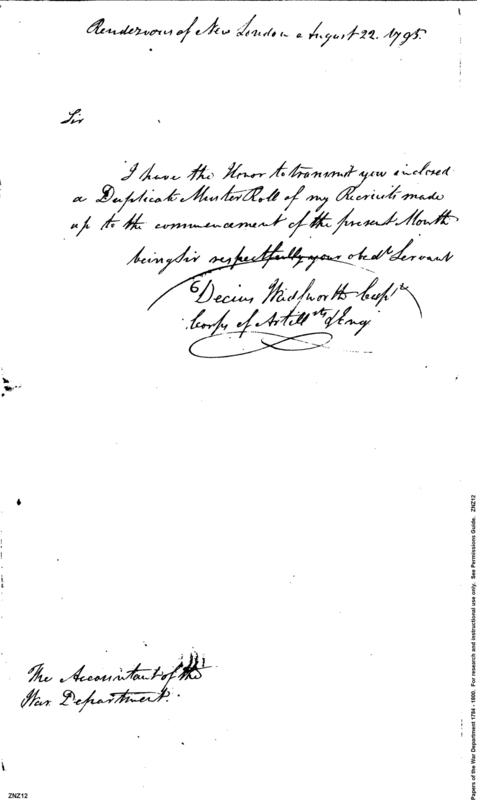 Rendezvous of New London August 22. 1795.
Sir
I have the Honor to transmit you inclosed
a Duplicate Muster Roll of my Recruits made
up to the commencement of the present Month
being Sir respectfully your obedt Servant
Decius Wadsworth Capt
Corps of Artillsts & Eng
The Accountant of the
War Department.
Papers of the War Department 1784 - 1800. For research and instructional use only. See Permissions Guide. ZNZ12
ZNZ12